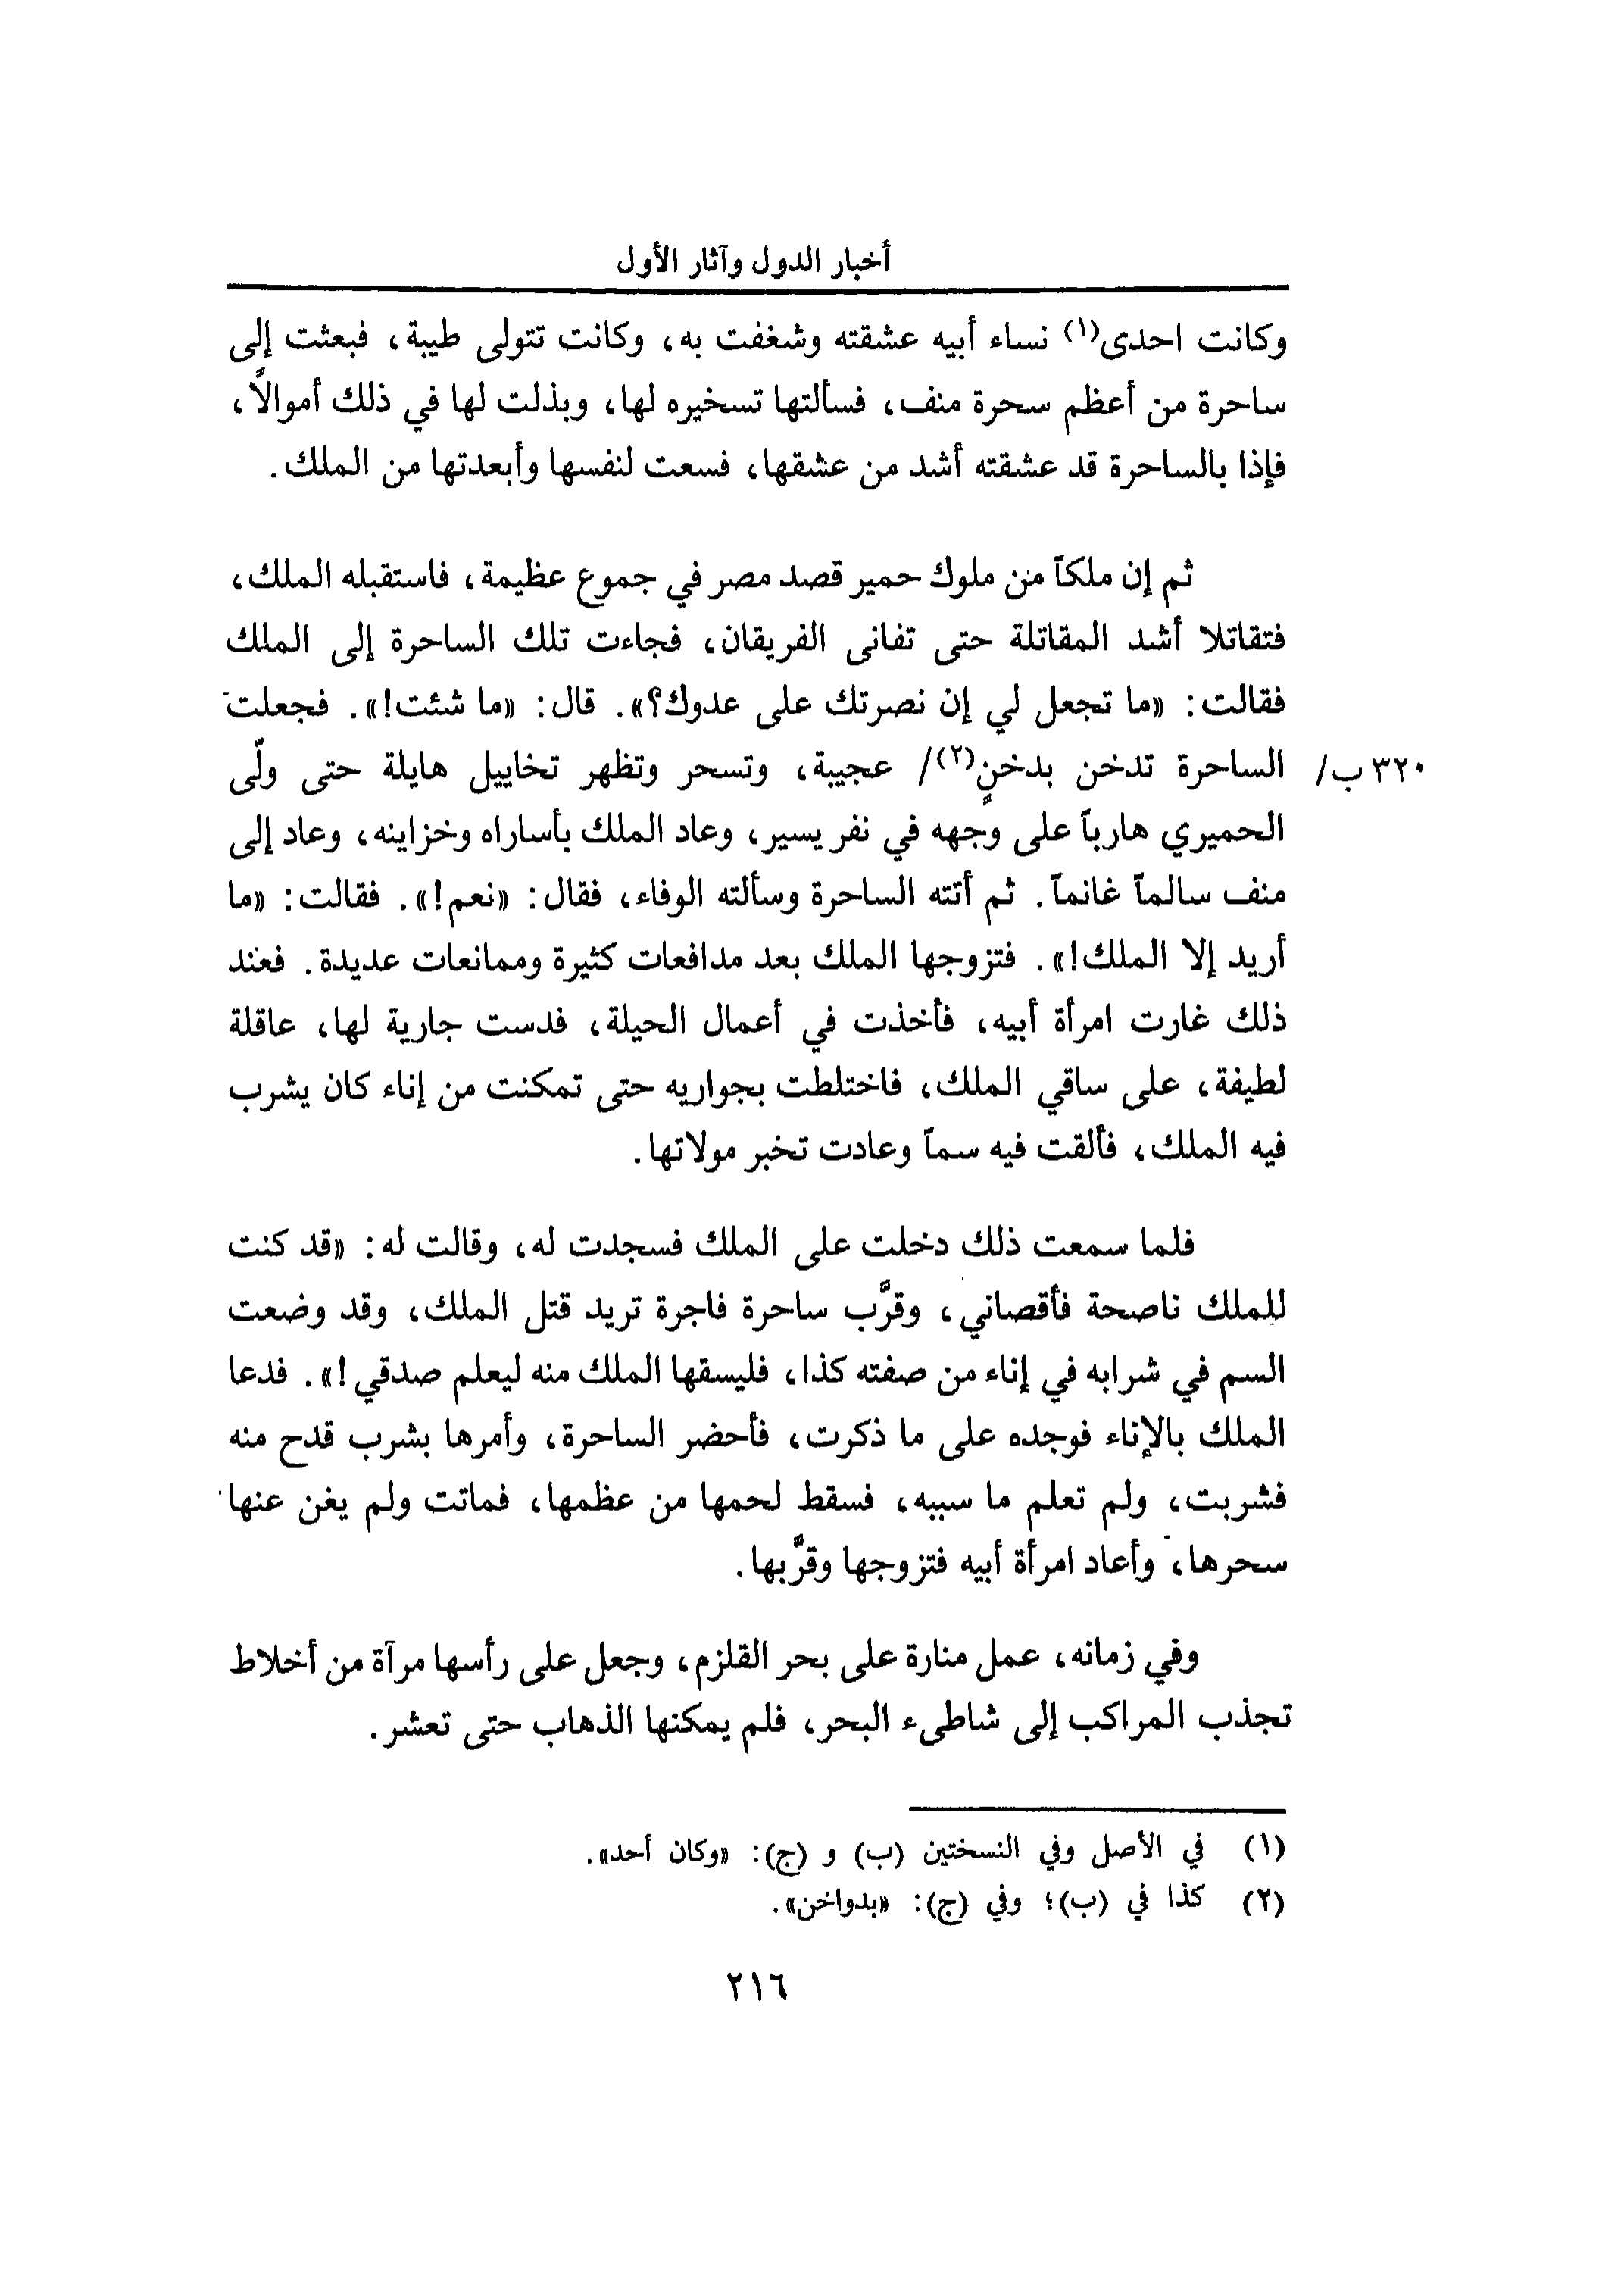 أخبار الدول وآثار الأول
وكانت احدى(١) نساء أبيه عشقته وشغفت به، وكانت تتولى طيبة، فبعثت إلى
ساحرة من أعظم سحرة منف، فسألتها تسخيره لها، وبذلت لها في ذلك أموالاً،
فإذا بالساحرة قد عشقته أشد من عشقها، فسعت لنفسها وأبعدتها من الملك.
ثم إن ملكاً من ملوك حمير قصد مصر في جموع عظيمة، فاستقبله الملك،
فتقاتلا أشد المقاتلة حتى تفانى الفريقان، فجاءت تلك الساحرة إلى الملك
فقالت: «ما تجعل لي إن نصرتك على عدوك؟». قال: «ما شئت!». فجعلت
الساحرة تدخن بدخنٍ(٢)/ عجيبة، وتسحر وتظهر تخاييل هايلة حتى ولّى
٣٢٠ ب/
الحميري هارباً على وجهه في نفر يسير، وعاد الملك بأساراه وخزاينه، وعاد إلى
منف سالماً غانماً. ثم أتته الساحرة وسألته الوفاء، فقال: «نعم!». فقالت: «ما
أريد إلا الملك!». فتزوجها الملك بعد مدافعات كثيرة وممانعات عديدة. فعند
ذلك غارت امرأة أبيه، فأخذت في أعمال الحيلة، فدست جارية لها، عاقلة
لطيفة، على ساقي الملك، فاختلطت بجواريه حتى تمكنت من إناء كان يشرب
فيه الملك، فألقت فيه سماً وعادت تخبر مولاتها.
فلما سمعت ذلك دخلت على الملك فسجدت له، وقالت له: «قد كنت
للملك ناصحة فأقصاني، وقرَّب ساحرة فاجرة تريد قتل الملك، وقد وضعت
السم في شرابه في إناء من صفته كذا، فليسقها الملك منه ليعلم صدقي!». فدعا
الملك بالإناء فوجده على ما ذكرت، فأحضر الساحرة، وأمرها بشرب قدح منه
فشربت، ولم تعلم ما سببه، فسقط لحمها من عظمها، فماتت ولم يغن عنها
سحرها، وأعاد امرأة أبيه فتزوجها وقرَّبها.
وفي زمانه، عمل منارة على بحر القلزم، وجعل على رأسها مرآة من أخلاط
تجذب المراكب إلى شاطىء البحر، فلم يمكنها الذهاب حتى تعشر.
(١) في الأصل وفي النسختين (ب) و (ج): «وكان أحد».
(٢) كذا في (ب)؛ وفي (ج): «بدواخن».
٢١٦